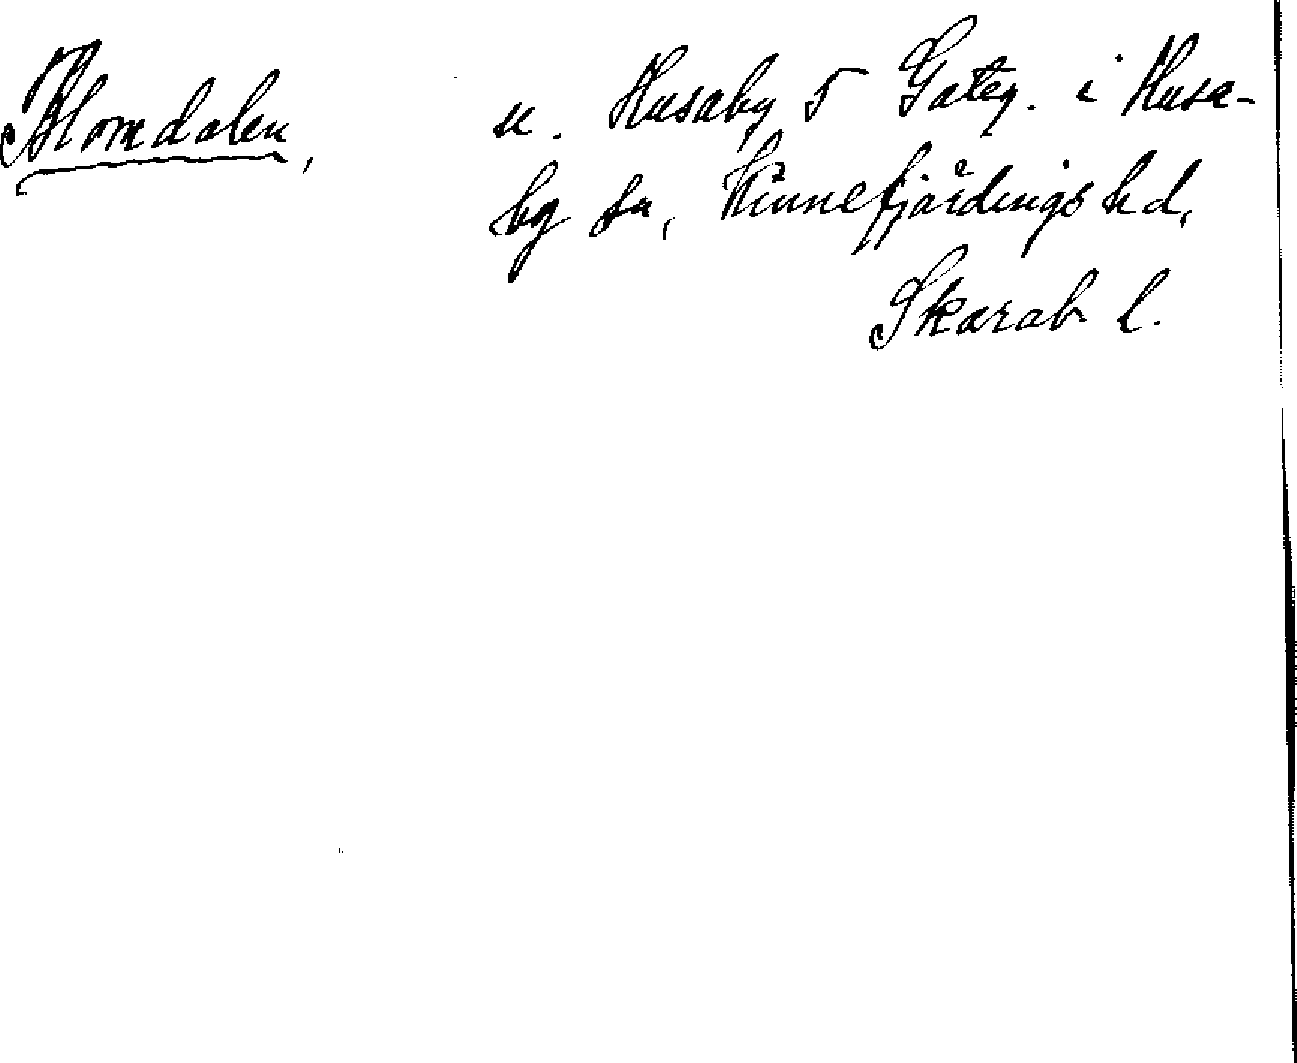 Blomdalen, u. Husaby 5 Gateg. i Husa-
by sn, Kinnefjärdings hd,
Skarab. l.